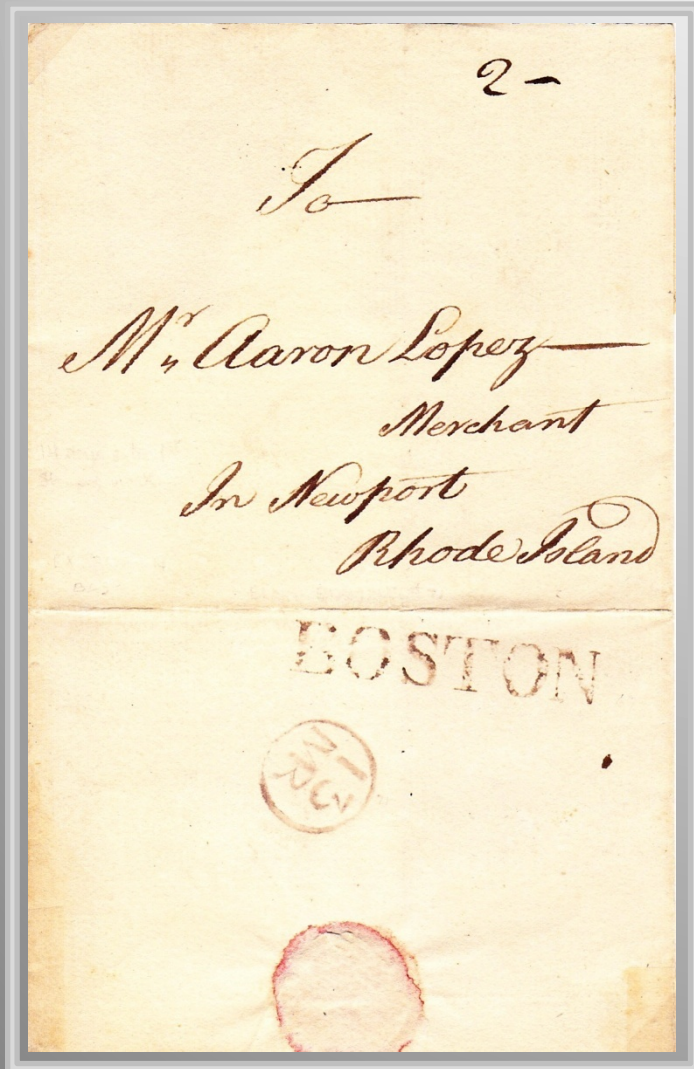 2 -
To
Mr. Aaron Lopez
Merchant
In Newport
Rhode Island
BOSTON
13
MR